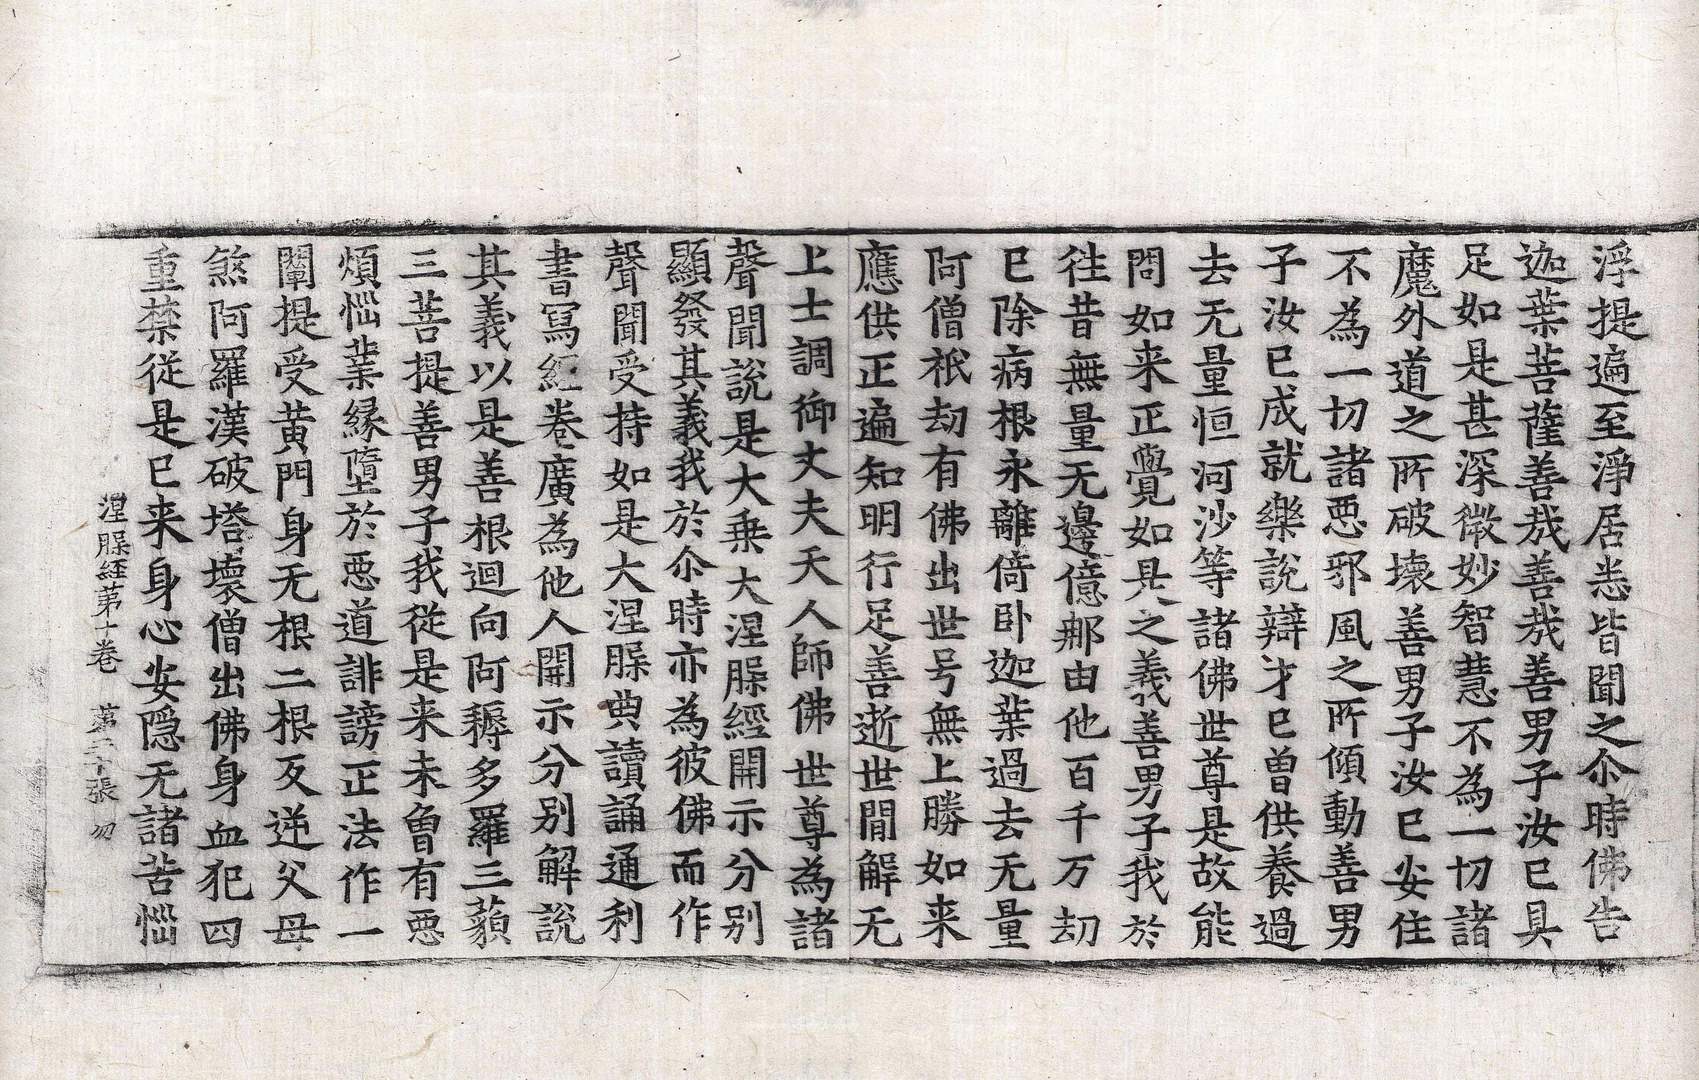 浮提遍至淨居悉皆聞之尒時佛告
迦葉菩薩善㢤善㢤善男子汝已具
足如是甚深微妙智慧不為一切諸
魔外道之所破壞善男子汝已安住
不為一切諸惡邪風之所傾動善男
子汝已成就樂說辯才已曾供養過
去无量恒河沙等諸佛世尊是故能
問如来正覺如是之義善男子我於
徃昔無量无邊億那由他百千万劫
已除病根永離倚卧迦葉過去无量
阿僧祇劫有佛出世号無上勝如来
應供正遍知明行足善逝世間解无
上士調御丈夫天人師佛世尊為諸
聲聞說是大乗大涅槃經開示分別
顯發其義我於尒時亦為彼佛而作
聲聞受持如是大涅槃典讀誦通利
書寫經卷廣為他人開示分別解說
其義以是善根迴向阿耨多羅三藐
三菩提善男子我從是来未曾有惡
煩惱業緣墮於惡道誹謗正法作一
闡提受黃門身无根二根反逆父母
煞阿羅漢破塔壞僧出佛身血犯四
重禁從是已来身心安隱无諸苦惱
涅槃経苐十卷 苐二十張 勿